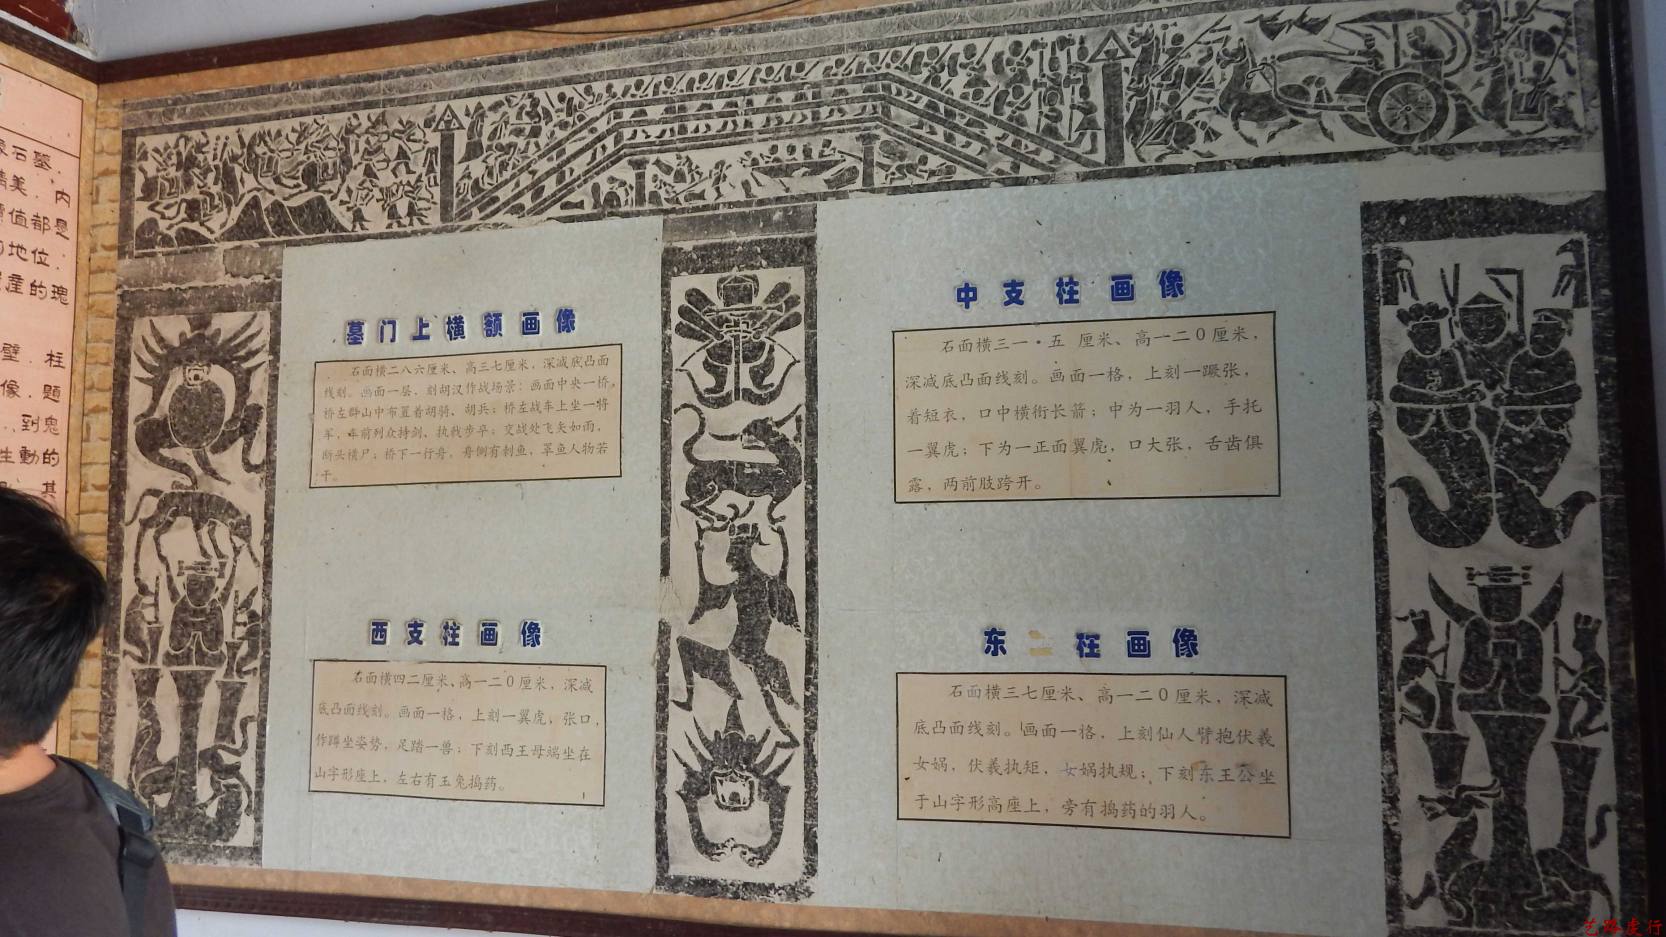 像石墓.
精美.内
價值都是
的地位.
產的瑰
壁.柱
像,題
到鬼
生動的
其
墓门上横额画像
石面横二八六厘米、高三七厘米,深减底凸面
线刻。画面一层,刻胡汉作战场景:画面中央一桥,
桥左群山中布置着胡骑、胡兵;桥左战车上坐一将
军,车前列众持剑、执戟步卒;交战处飞矢如雨,
断头横尸;桥下一行舟,舟侧有刺鱼,罩鱼人物若
干。
中支柱画像
石面横三一·五 厘米、高一二0厘米,
深减底凸面线刻。画面一格,上刻一蹶张,
着短衣,口中横衔长箭;中为一羽人,手托
一翼虎;下为一正面翼虎,口大张,舌齿俱
露,两前肢跨开。
西支柱画像
石面横四二厘米、高一二0厘米,深减
底凸面线刻。画面一格,上刻一翼虎,张口,
作蹲坐姿势,足踏一兽;下刻西王母端坐在
山字形座上,左右有玉兔捣药。
东 柱画像
石面横三七厘米、高一二0厘米,深减
底凸面线刻。画面一格,上刻仙人臂抱伏羲
女娲,伏羲执矩,女娲执规;下刻东王公坐
于山字形高座上,旁有捣药的羽人。
艺路虔行